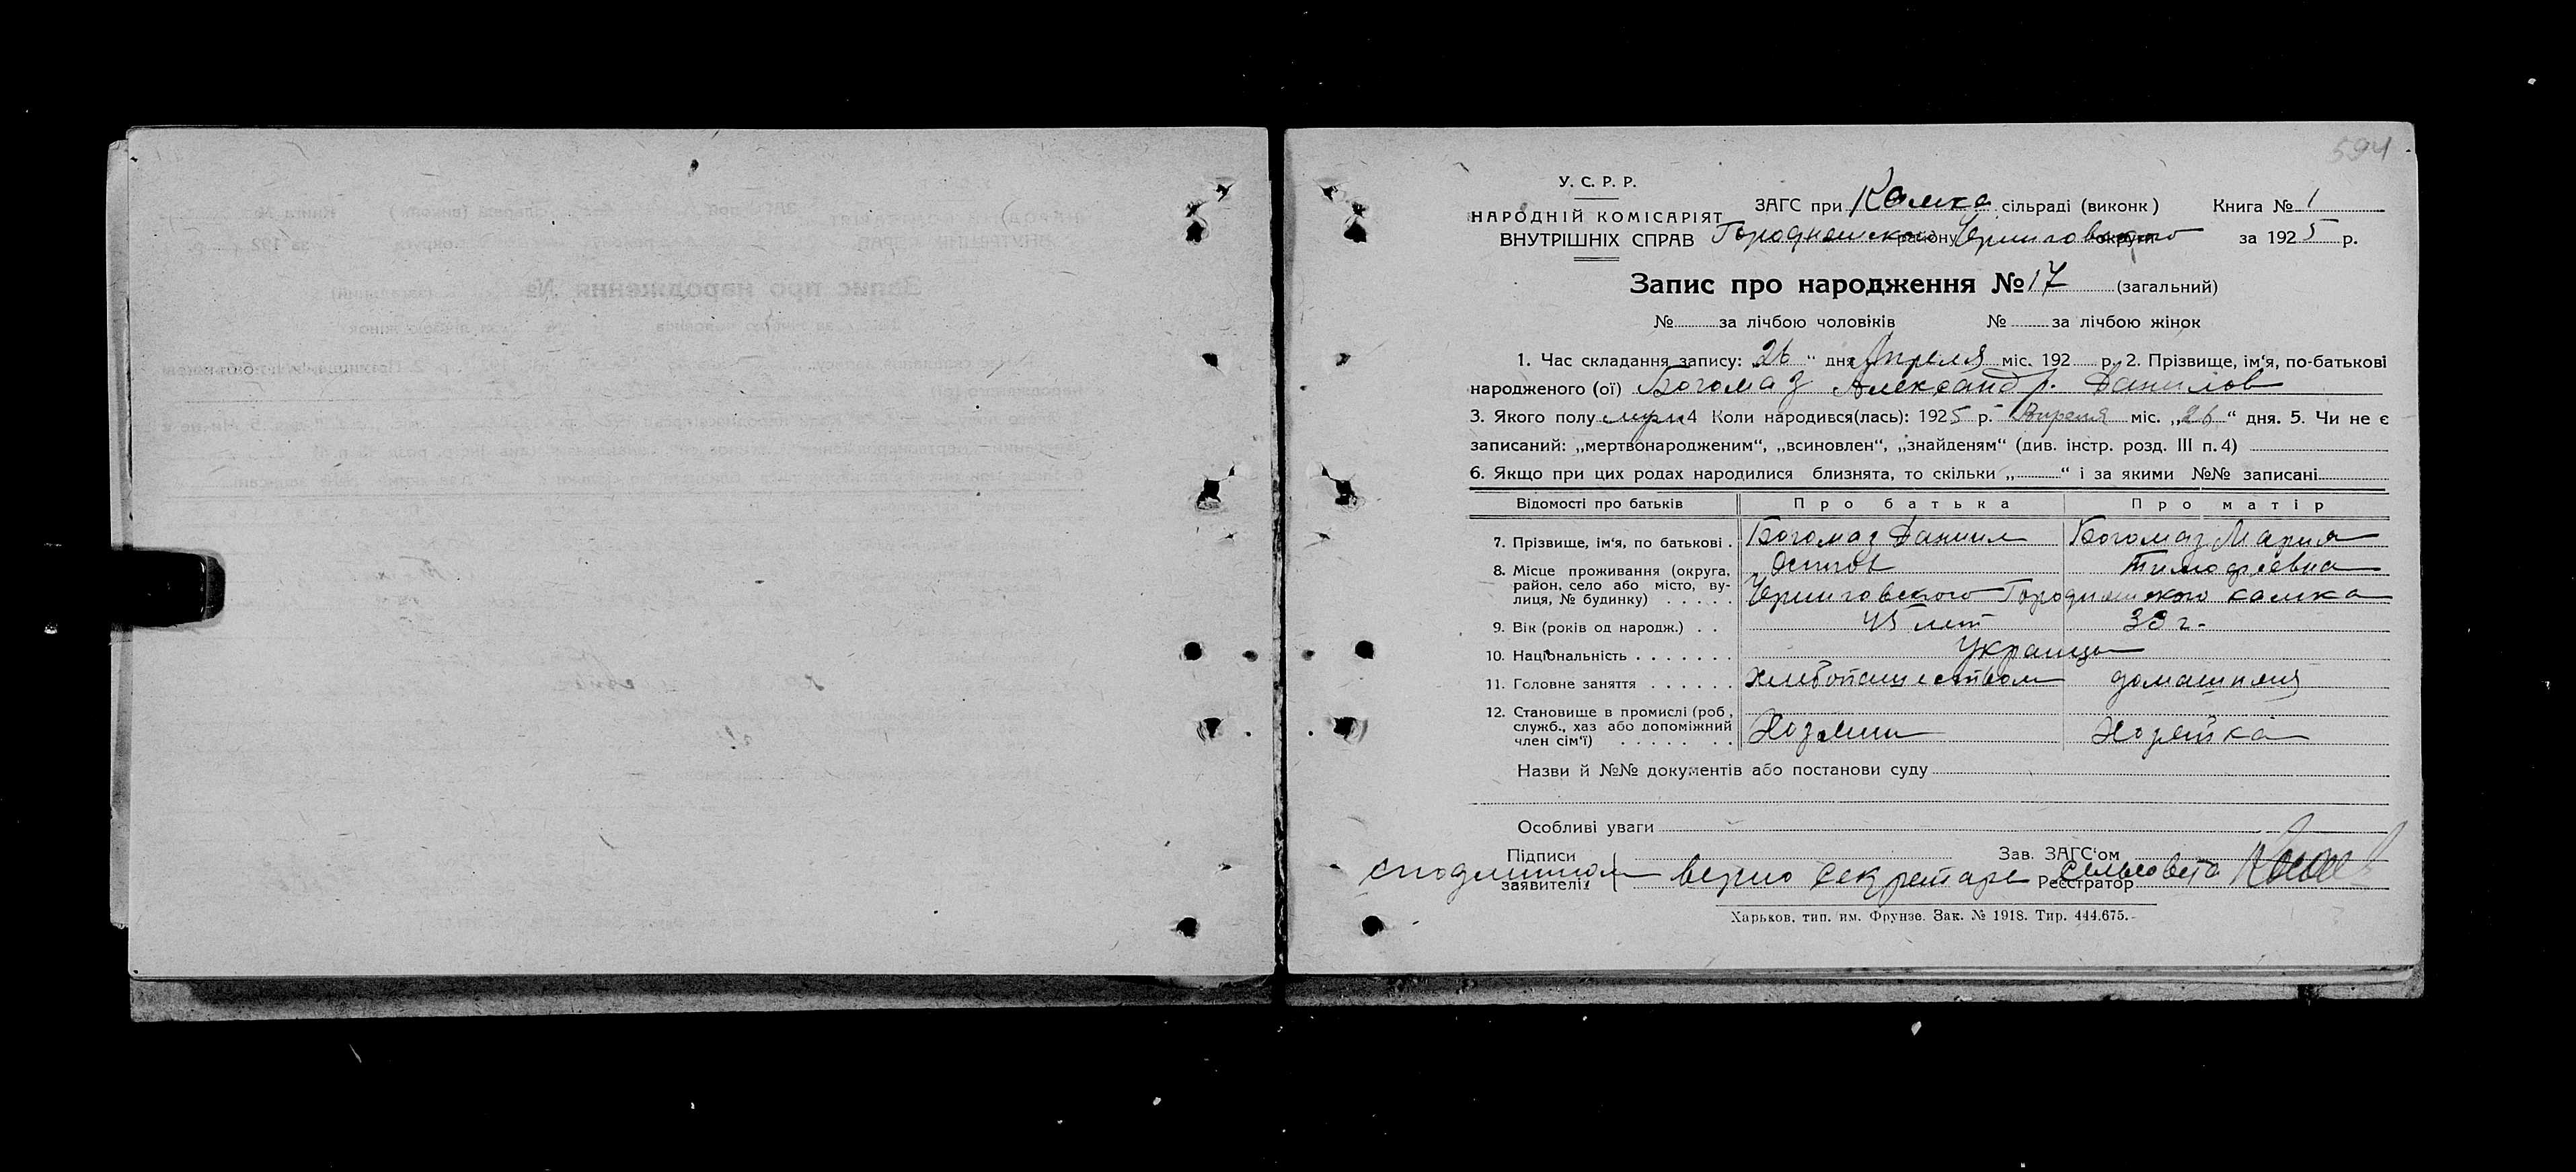 594
У. С. Р. Р.
НАРОДНІЙ КОМІСАРІЯТ
ВНУТРІШНІХ СПРАВ
ЗАГС при Камка сільраді (виконк) Книга № 1
Городнянского району Черниговского округи за 1925 р.
Запис про народження № 17 (загальний)
№ за лічбою чоловіків № за лічбою жінок
1. Час складання запису: 26 " дня Апреля міс. 192 р. 2. Прізвище, ім'я, по-батькові
народженого (ої) Богомаз Александр. Данилов
3. Якого полу муж 4 Коли народився(лась): 1925 р. Апреля міс. „26" дня. 5. Чи не є
записаний: „мертвонародженим", „всиновлен", „знайденям" (див. інстр. розд. III п. 4)
6. Якщо при цих родах народилися близнята, то скільки „ " і за якими №№ записані
Відомості про батьків Про батька Про матір
7. Прізвище, ім'я, по батькові . Богомаз Даниил Богомаз Мария
Осипов Тимофеевна
8. Місце проживання (округа,
район, село або місто, ву-
лиця, № будинку) . . . . . Черниговского Городнянского Камка
9. Вік (років од народж.) . . 45 лет 39 г.
10. Національність . . . . . . . Украинцы
11. Головне заняття . . . . . . Хлебопашеством домашняя
12. Становище в промислі (роб,
служб., хаз або допоміжний
член сім'ї) . . . . . . . . Хозяин Хозяйка
Назви й №№ документів або постанови суду
Особливі уваги
Підписи Зав. ЗАГС'ом
заявителів Реєстратор
с подлинном верно секретарь сельсовета
Харьков, тип. им. Фрунзе. Зак. № 1918. Тир. 444.675.